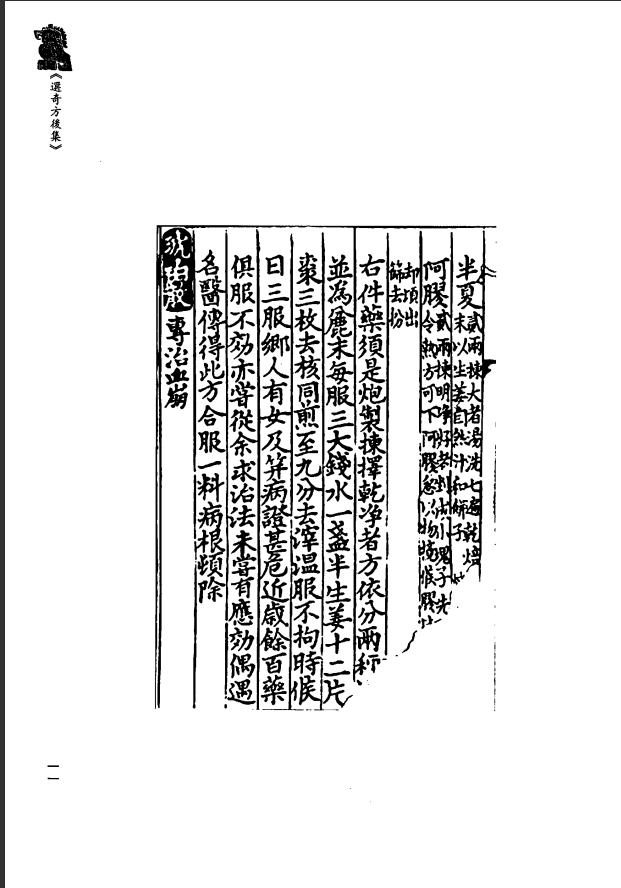 《選奇方後集》
半夏貳兩揀大者湯洗七遍乾焙
末以生姜自然汁和餅子
阿膠貳兩揀明净好者
令熱方可下阿膠
却頃出
篩去粉
右件藥須是炮製揀擇乾净者方依分兩秤
並為麄末每服三大錢水一盞半生姜十二片
棗三枚去核同煎至九分去滓溫服不拘時候
日三服鄉人有女及笄病證甚危近歲餘百藥
俱服不効亦嘗從余求治法未嘗有應効偶遇
名醫傳得此方合服一料病根頓除
琥珀散 專治血崩
一一